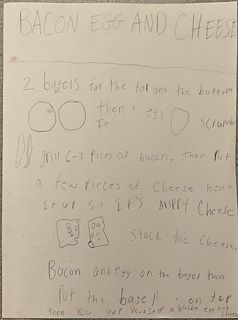 BACON EGG AND CHEESE
2 bagels for the top and the bottom
then 1 egg
It scramb
grill 6-7 pices of bacon, then Put
a few pieces of Cheese heat
It up so It's drippy Cheese
Stack the Cheese,
Bacon and egg on the bagel then
Put the bagel on top
then you got yourself a bacon egg and cheese